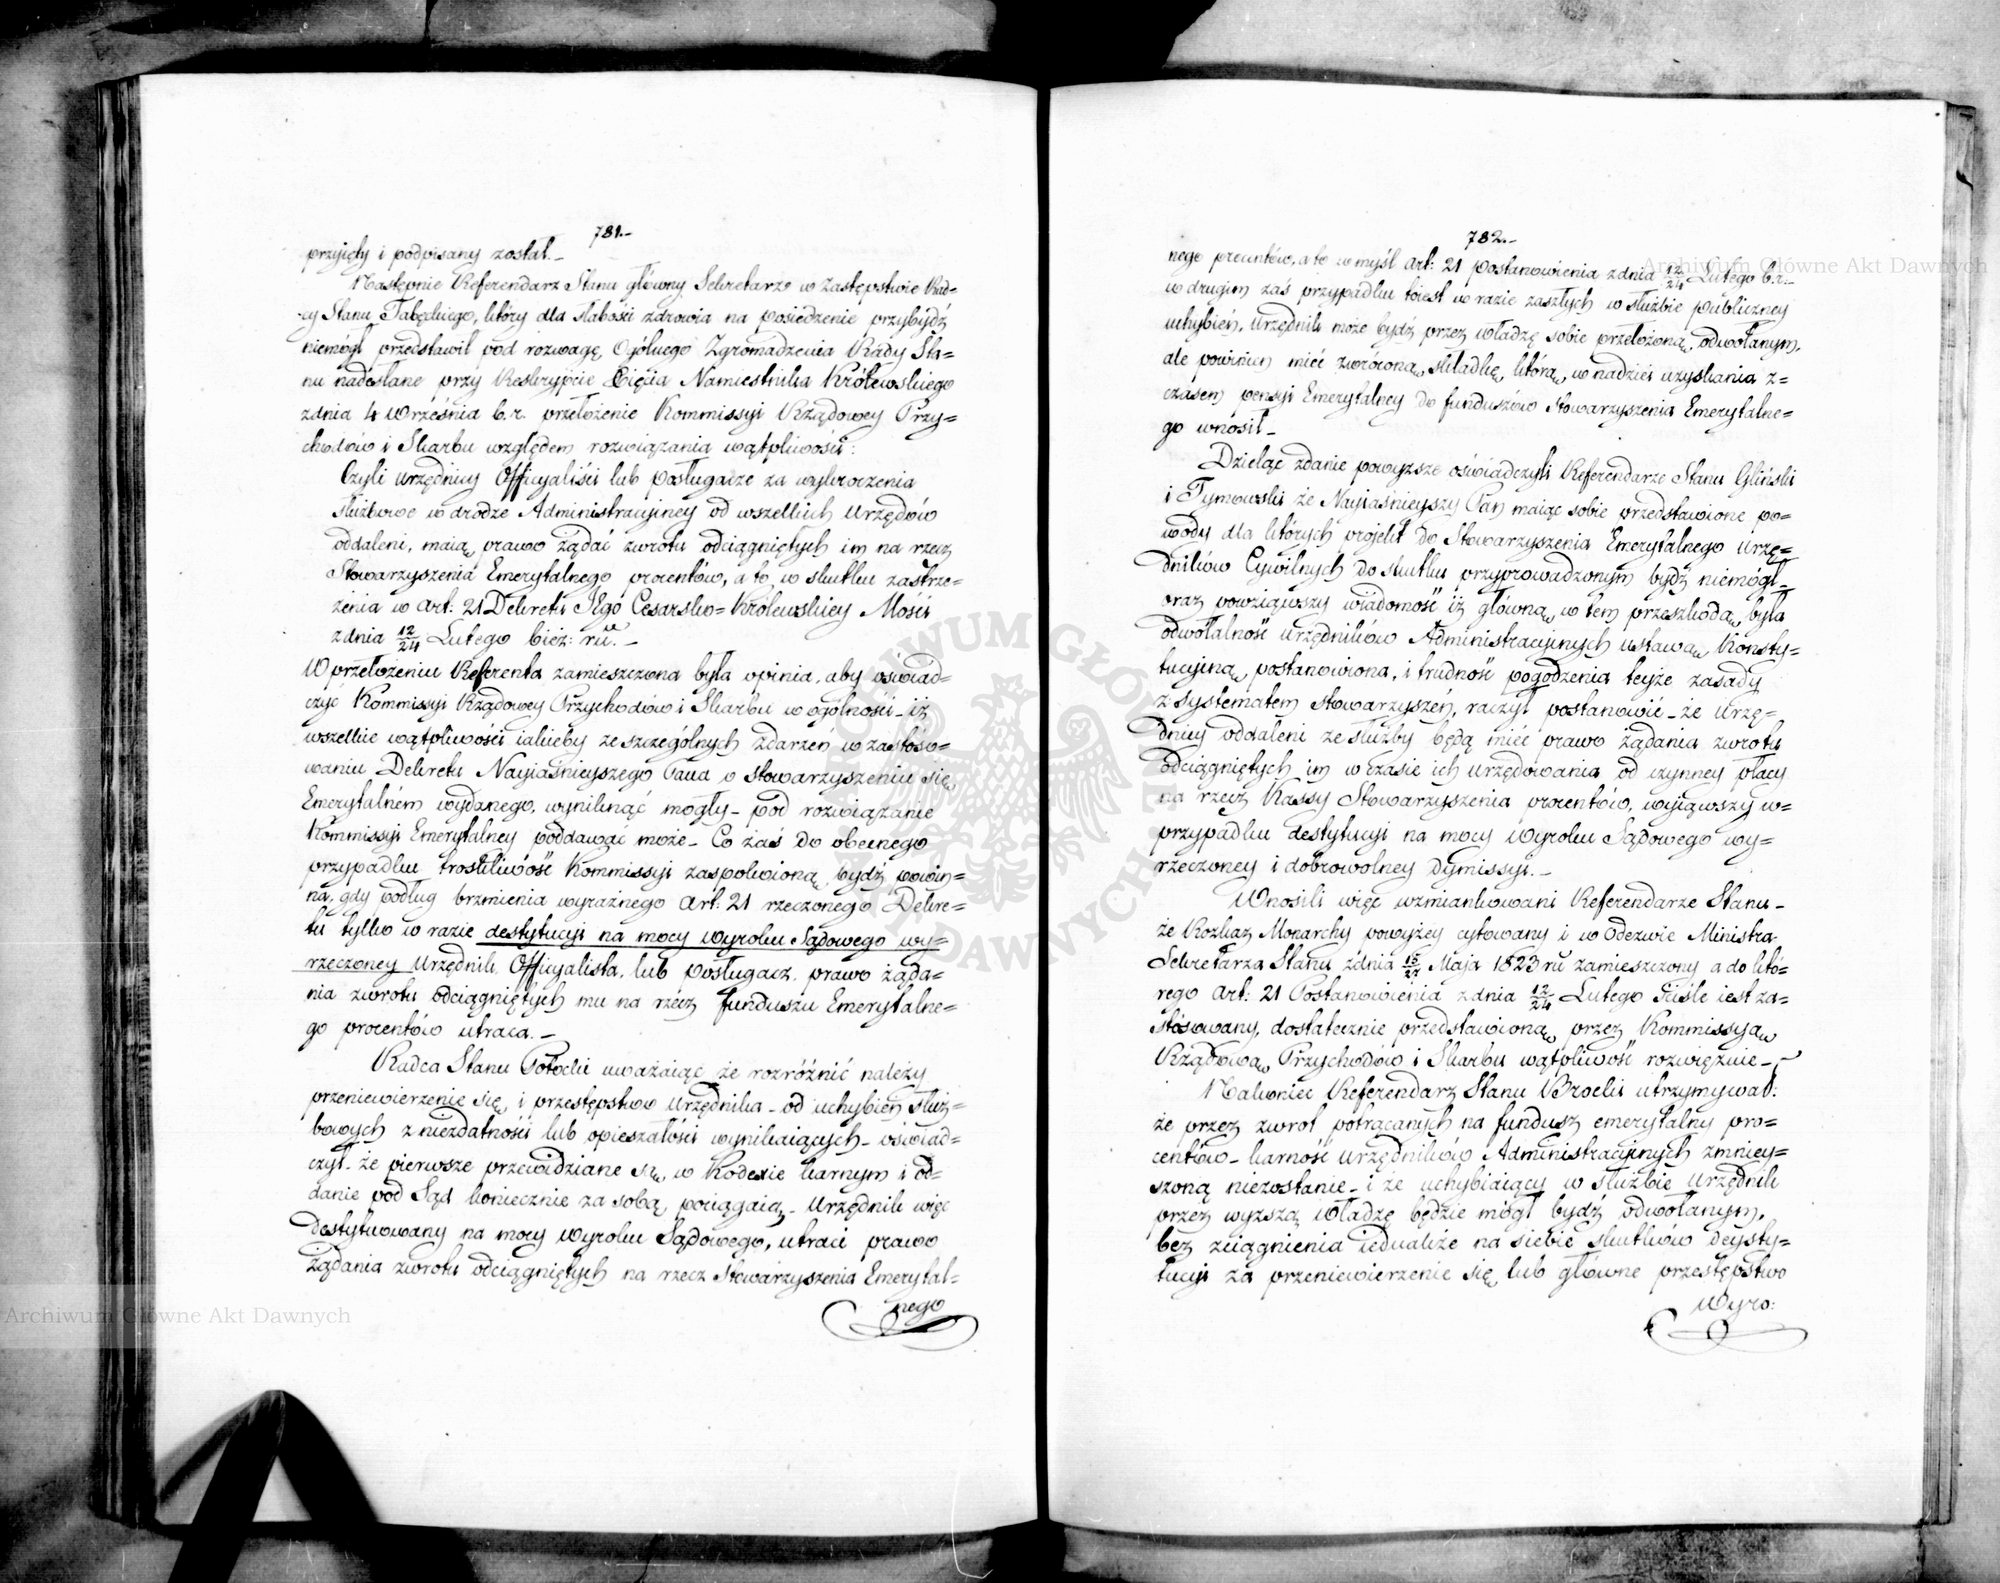 781.-
przyięty i podpisany został._
Następnie Referendarz Stanu główny Sekretarz w zastępstwie Rad=
cy Stanu Tabęckiego, który dla słabości zdrowia na posiedzenie przybydź
niemógł przedstawił pod rozwagę Ogólnego Zgromadzenia Rady Sta=
nu nadesłane przy Reskrypcie Xięcia Namiestnika Królewskiego
z dnia 4 Września b.r. przełożenie Kommissyi Rządowey Przy=
chodów i Skarbu względem rozwiązania wątpliwości:
Czyli urzędnicy Officyaliści lub posługacze za wykroczenia
służbowe w drodze Administracyiney od wszelkich urzędów
oddaleni, maią prawo żądać zwrotu odciągniętych im na rzecz
Stowarzyszenia Emerytalnego procentów, a to w skutku zastrze=
żenia w art: 21 Dekretu JEgo Cesarsko=Królewskiey Mości
z dnia 12/24 Lutego bież: ru._
W przełożeniu Referenta zamieszczona była opinia, aby oświad=
czyć Kommissyi Rządowey Przychodów i Skarbu w ogólności_ iż
wszelkie wątpliwości iakieby ze szczególnych zdarzeń w zastóso=
waniu Dekretu Nayiaśnieyszego Pana o stowarzyszeniu się
Emerytalném wydanego, wyniknąć mogły_ pod rozwiązanie
Kommissyi Emerytalney poddawać może_ Co zaś do obecnego
przypadku troskliwość Kommissyi zaspokoioną bydź powin=
na, gdy podług brzmienia wyraźnego art: 21 rzeczonego Dekre=
tu tylko w razie destytucyi na mocy Wyroku Sądowego wy=
rzeczoney Urzędnik, Officyalista, lub posługacz, prawo żąda=
nia zwrotu odciągniętych mu na rzecz funduszu Emerytalne=
go procentów utraca._
Radca Stanu Potocki uważaiąc że rozróżnić należy
przeniewierzenie się i przestępstwo urzędnika_ od uchybień służ=
bowych z niezdatności lub opieszałości wynikaiących_ oświad=
czył_ że pierwsze przewidziane są w Kodexie karnym i od=
danie pod Sąd koniecznie za sobą pociągaią_ Urzędnik więc
destytuowany na mocy Wyroku Sądowego, utraci prawo
żądania zwrotu odciągniętych na rzecz Stowarzyszenia Emerytal=
nego
782.-
nego procentów, a to w myśl art: 21 postanowienia z dnia 12/24 Lutego b.r._
w drugim zaś przypadku toiest w razie zaszłych w służbie publiczney
uchybień, urzędnik może bydź przez władzę sobie przełożoną, odwołanym,
ale powinien mieć zwróconą składkę, którą, w nadziei uzyskania z=
czasem pensyi Emerytalney do funduszów Stowarzyszenia Emerytalne=
go wnosił_
Dzieląc zdanie powyższe oświadczyli Referendarze Stanu Gliński
i Tymowski że Nayiaśnieyszy Pan maiąc sobie przedstawione po=
wody dla których projekt do Stowarzyszenia Emerytalnego urzę=
dników Cywilnych do skutku przyprowadzonym bydź niemógł_
oraz powziąwszy wiadomość iż główną w tem przeszkodą była
odwołalność urzędników Administracyinych ustawą Konsty=
tucyiną postanowiona, i trudność pogodzenia teyże zasady
z systematem stowarzyszeń, raczył postanowić_ że urzę=
dnicy oddaleni ze służby będą mieć prawo żądania zwrotu
odciągniętych im w czasie ich urzędowania od czynney płacy
na rzecz Kassy Stowarzyszenia procentów, wyiąwszy w=
przypadku destytucyi na mocy Wyroku Sądowego wy=
rzeczoney i dobrowolney Dymissyi._
Wnosili więc wzmiankowani Referendarze Stanu_
że Rozkaz Monarchy powyżey cytowany i w Odezwie Ministra
Sekretarza Stanu z dnia 15/27 Maja 1823 ru zamieszczony a do któ=
rego art: 21 Postanowienia z dnia 12/24 Lutego ściśle iest za=
stósowany, dostatecznie przedstawioną przez Kommissyą
Rządową Przychodów i Skarbu wątpliwość rozwięzuie_
Nakoniec Referendarz Stanu Brocki utrzymywał:
że przez zwrot potrącanych na fundusz emerytalny pro=
centów_ karność urzędników Administracyinych zmniey=
szoną niezostanie_ i że uchybiaiący w służbie urzędnik
przez wyższą władzę będzie mógł bydź odwołanym,
bez zciągnienia iednakże na siebie skutków desty=
tucyi za przeniewierzenie się lub główne przestępstwo
Wyro:
Archiwum Główne Akt Dawnych
Archiwum Główne Akt Dawnych
ARCHIWUM GŁÓWNE AKT DAWNYCH